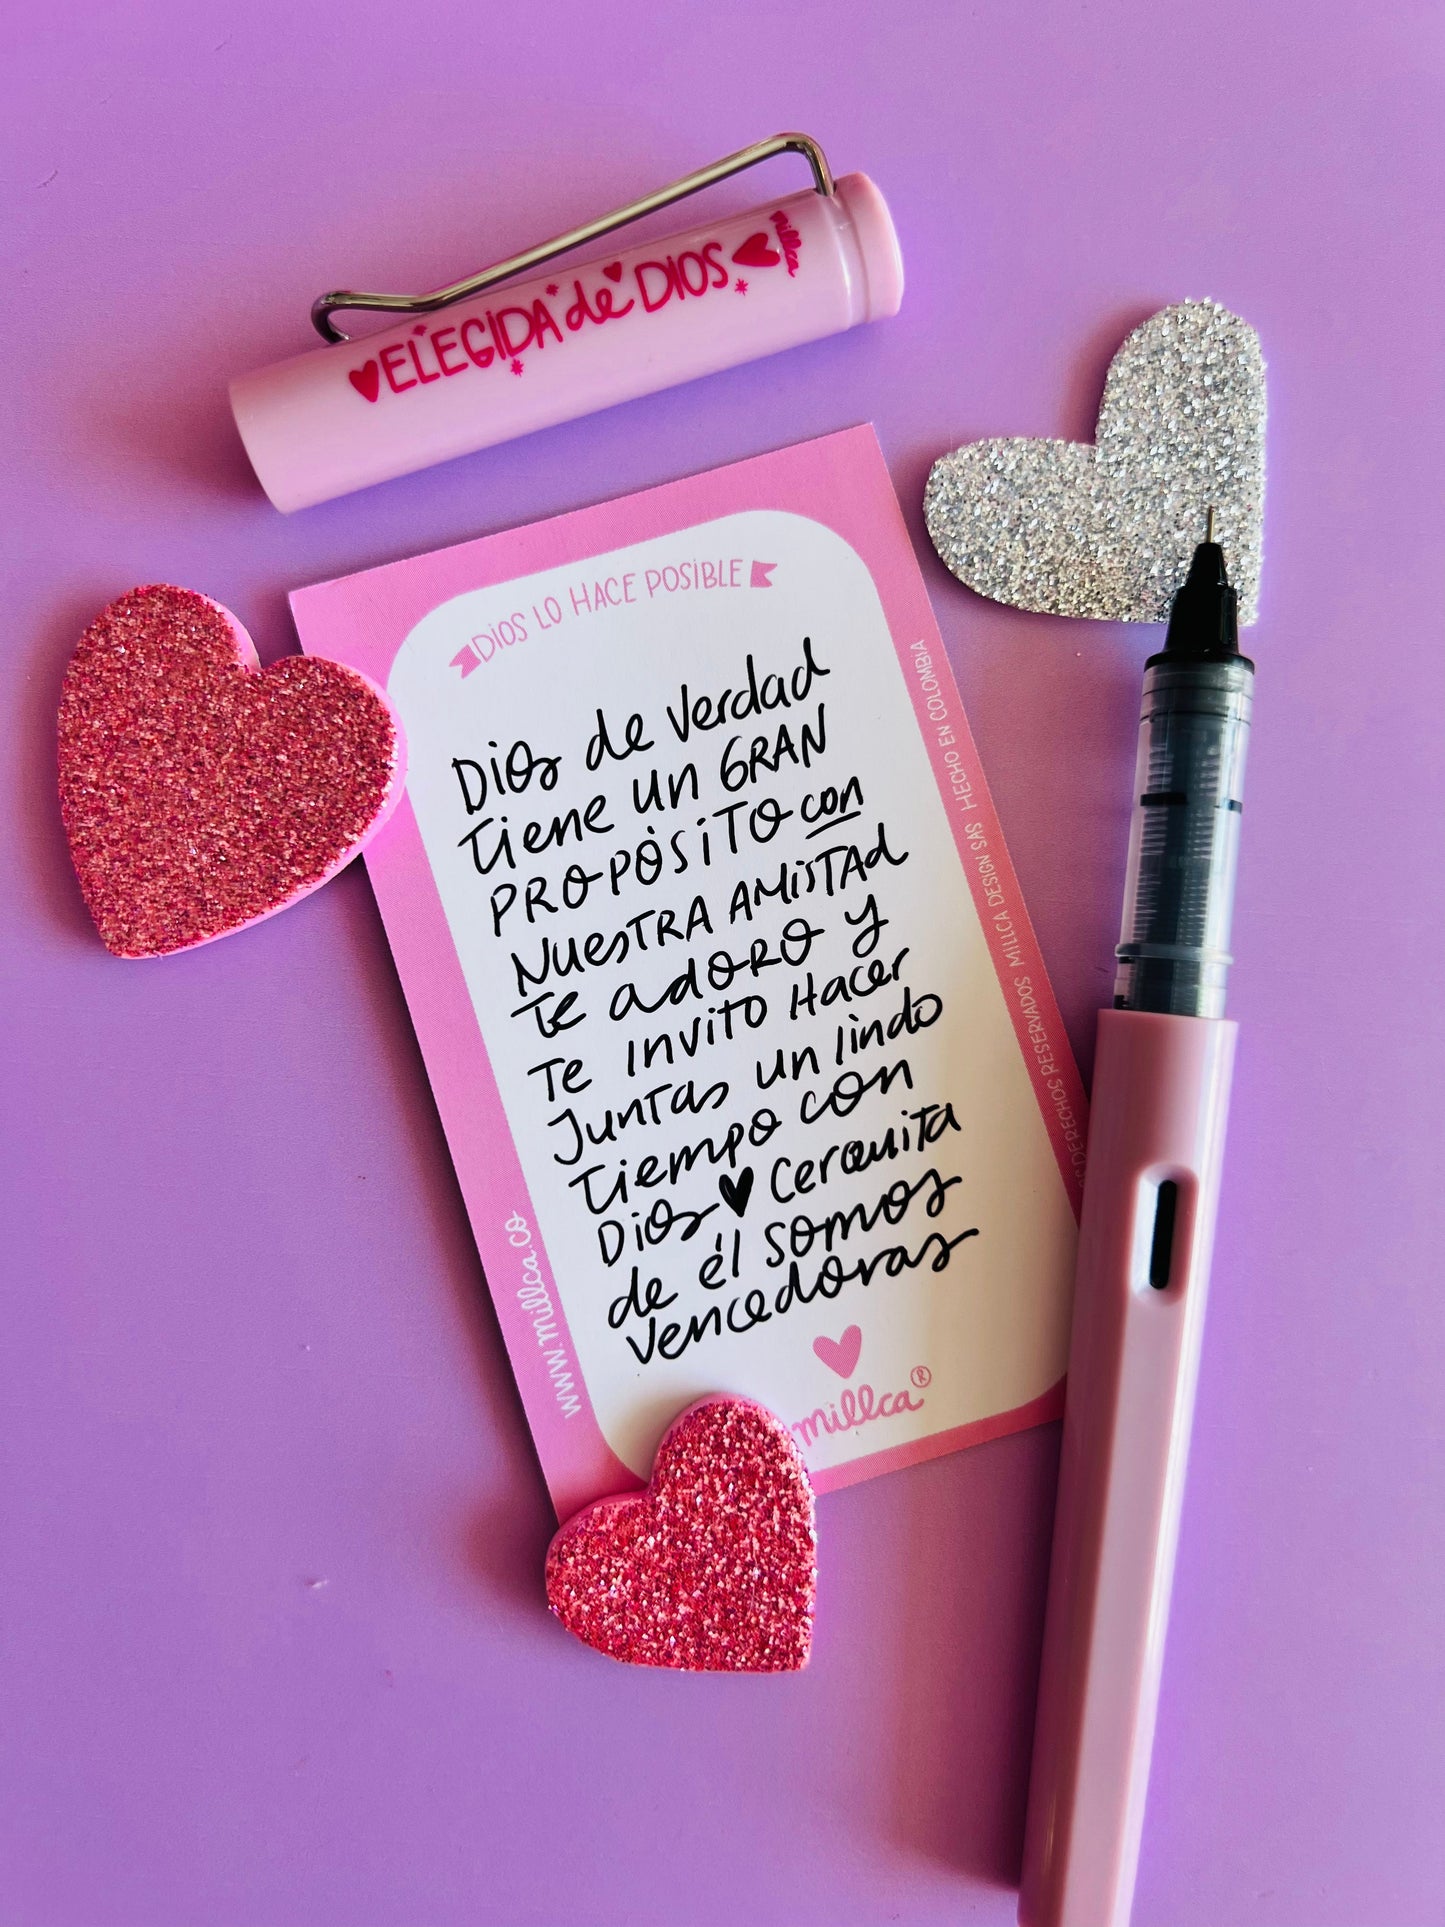 ELEGIDA de DIOS
millca
DIOS LO HACE POSIBLE
Dios de verdad
tiene un GRAN
PROPÓSITO con
NUESTRA AMISTAd
Te adoro y
Te invito Hacer
Juntas un lindo
tiempo con
Dios ♥ Cerquita
de él somos
vencedoras
millca®
www.millca.co
DERECHOS RESERVADOS MILLCA DESIGN SAS HECHO EN COLOMBIA